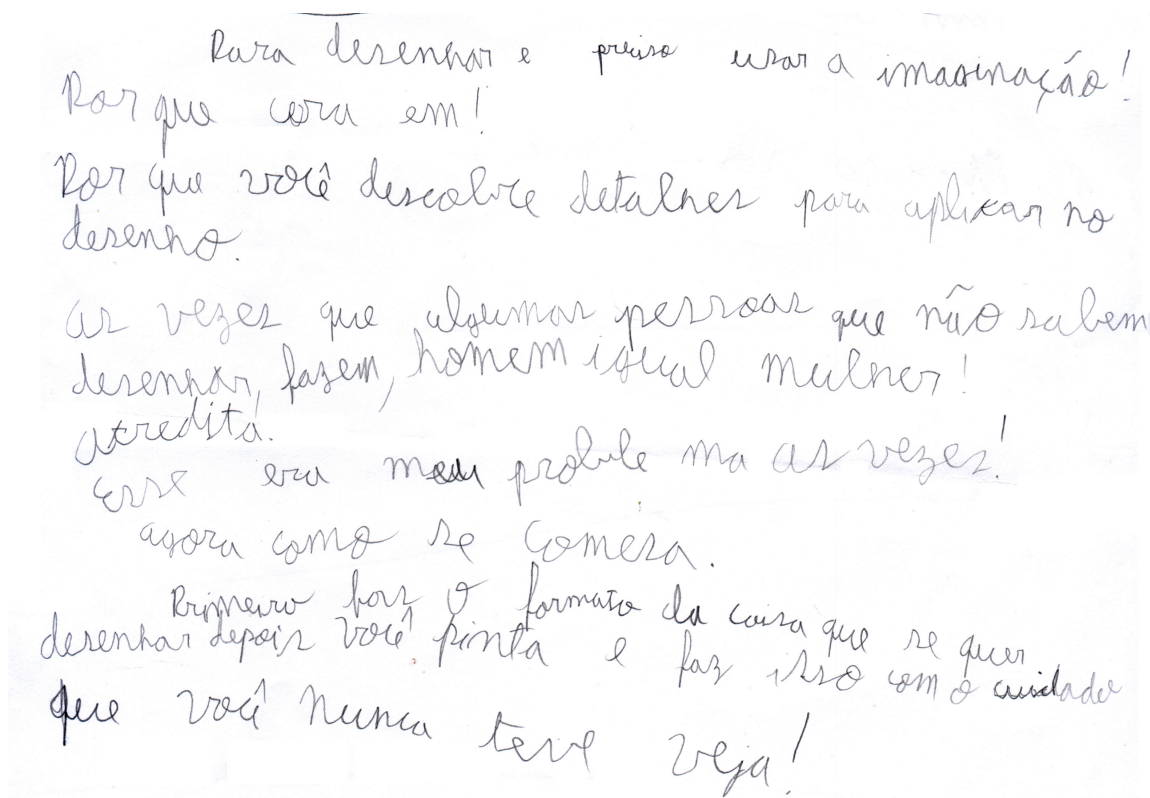 Para desenhar e preciso usar a imaginação!
Por que cora em!
Por que você descobre detalhes para aplixar no
desenho.
as vezes que algumas pessoas que não sabem
desenhar, fazem, homem igual mulher!
acredita!.
Esse era meu proble ma as vezes!
agora como se comesa.
Primeiro fais o formato da coisa que se quer
desenhar depois você pinta e faz isso com o cuidado
que você nunca teve veja!